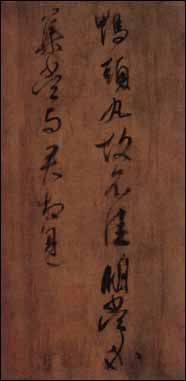 鸭頭丸故不佳明當必
集當與君相見